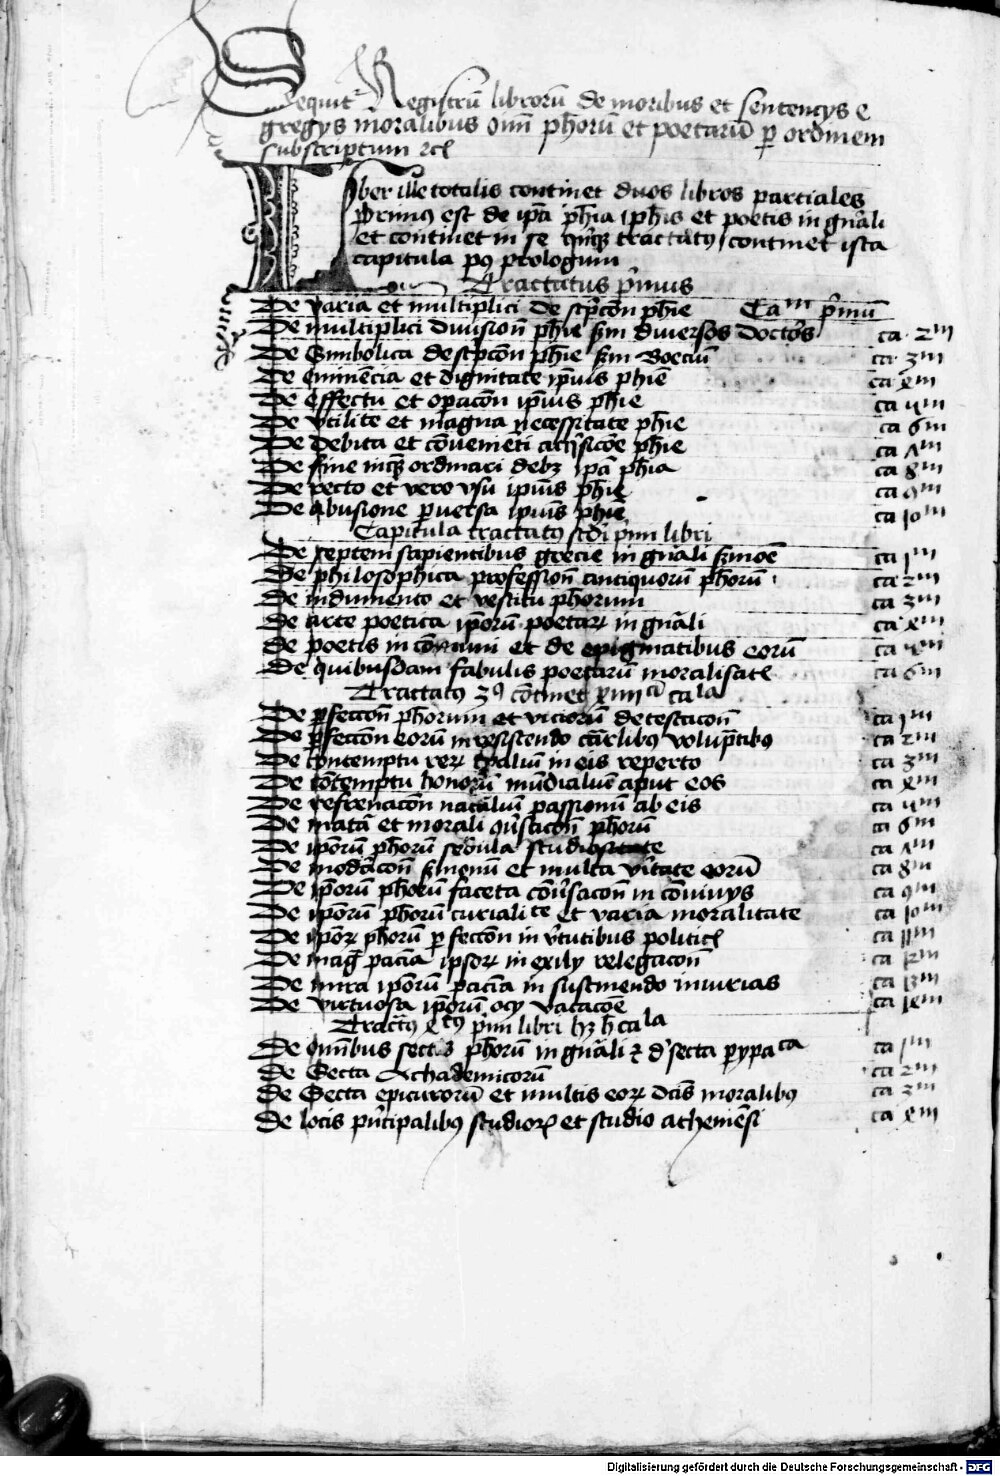 Sequit᷑ Registrū librorū de moribus et sentencys e
gregys moralibus oīm ph̄orū et poetarū ꝑ ordinem
subscriptum
Iber ille totalis continet duos libros partiales
prīus est de ip̄a ph̄ia ph̄is et poetis in gn̄ali
et continet in se tractatꝰ continet ista
capitula pꝰ prologum
Tractatus p̄mus
De varia et multiplici descͥpcōn ph̄ie Caᵐ p̄mū
De multiplici diuisiōn ph̄ie ẜm diuersos doctōs ca 2ᵐ
De Simbolica descͥpcōn ph̄ie ẜm Boeciū ca 3ᵐ
De eminēcia et dignitate ip̄ius ph̄ie ca 4ᵐ
De effectu et oꝑacōn ip̄ius ph̄ie ca 5ᵐ
De vtilite et magna necessitate ph̄ie ca 6ᵐ
De debita et cōuenieti ph̄ie ca 7ᵐ
De fine ordinari debꝫ ip̄a ph̄ia ca 8ᵐ
De recto et vero vsu ipiūs ph̄ie ca 9ᵐ
De abusione ꝑuersa ipiūs ph̄ie ca 10ᵐ
Capitula tractatꝰ scd̄i p̄mi libri
De septem sapientibus grecie in gn̄ali ẜmōe ca 1ᵐ
De philosophica professiōn antiquorum ph̄orū ca 2ᵐ
De indumento et vestitu ph̄orum ca 3ᵐ
De arte poetica ip̄orū poetaꝝ in gn̄ali ca 4ᵐ
De poetis in cōmuni et de epigmatibus eorū ca 5ᵐ
De quibusdam fabulis poetarū moralisatꝭ ca 6ᵐ
Tractatꝰ 3ꝰ cōtinet xiiii caˡᵃ
De ꝑfecciōn ph̄orum et viciorū detestaciōn ca 1ᵐ
De ꝑfecciōn eorū in resistendo carl̄ibꝰ volupt̄ibꝰ ca 2ᵐ
De contemptu reꝝ tp̄aliū in eis reperto ca 3ᵐ
De cōtemptu honorū mūdialiū aput eos ca 4ᵐ
De refrenacōn naturaliū passionū ab eis ca 5ᵐ
De et morali ph̄orū ca 6ᵐ
De ip̄orum ph̄orū sedula studiositate ca 7ᵐ
De moďacōn ẜmonum et multa v̄itate eorū ca 8ᵐ
De ip̄orum ph̄orū faceta cōūsacōn in cōuiuys ca 9ᵐ
De ip̄orū ph̄orū curialite et varia moralitate ca 10ᵐ
De ip̄oꝝ ph̄orū ꝑfecciōn in v̄tutibus politicꝭ ca 11ᵐ
De mag̃ pacīa ipsoꝝ in exily relegacōn ca 12ᵐ
De mira ip̄orū pacīa in sustinendo iniurias ca 13ᵐ
De virtuosa ip̄orū ocy vacacōe ca 14ᵐ
Tract̄ꝰ 4ᵗꝰ p̄mi libri hꝫ h̄ caˡᵃ
De om̄ibus sectis ph̄orum in gn̄ali ⁊ d' secta ꝑypaᶜᵃ ca 1ᵐ
De Secta Achademicorū ca 2ᵐ
De Secta epicurorū et multis eoꝝ dc̄is moralibꝰ ca 3ᵐ
De locis pn̄cipalibꝰ studioꝝ et studio atheniēsi ca 4ᵐ
Digitalisierung gefördert durch die Deutsche Forschungsgemeinschaft - DFG